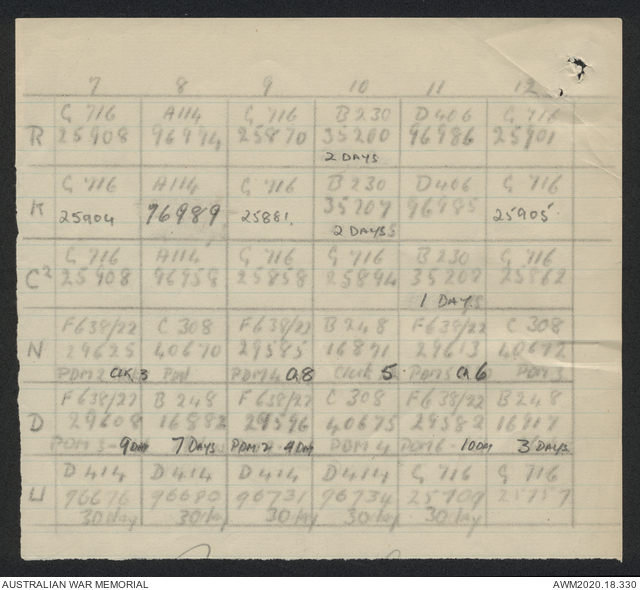 7 8 9 10 11 12
G 716 A114 G 716 B 230 D 406 G 716
R 25908 96994 25870 35200 96986 25901
2 DAYS
G 716 A114 G 716 B 230 D406 G 716
K 25904 96989 25881. 35207 96985 25905
2 DAYS
G 716 A114 G 716 G 716 B 230 G 716
C² 25908 96958 25858 25894 35207 25862
1 DAYS
F638/22 C 308 F638/22 B 248 F638/22 C 308
N 29625 40670 29585 16871 29613 40672
PDM 2 CLK 3 PDM PDM 4 Clock 5 PDM 5 CK 6 PDM 3
F638/22 B 248 F638/22 C 308 F638/22 B 248
D 29608 16882 29596 40675 29582 16917
PDM 3 9 DAY 7 DAYS PDM 2 9 DAY PDM 4 PDM 6 10 DAY 3 DAYS
D 414 D 414 D 414 D 414 G 716 G 716
U 96676 96680 96731 96734 25709 25757
30 day 30 day 30 day 30 day 30 day
AUSTRALIAN WAR MEMORIAL AWM2020.18.330